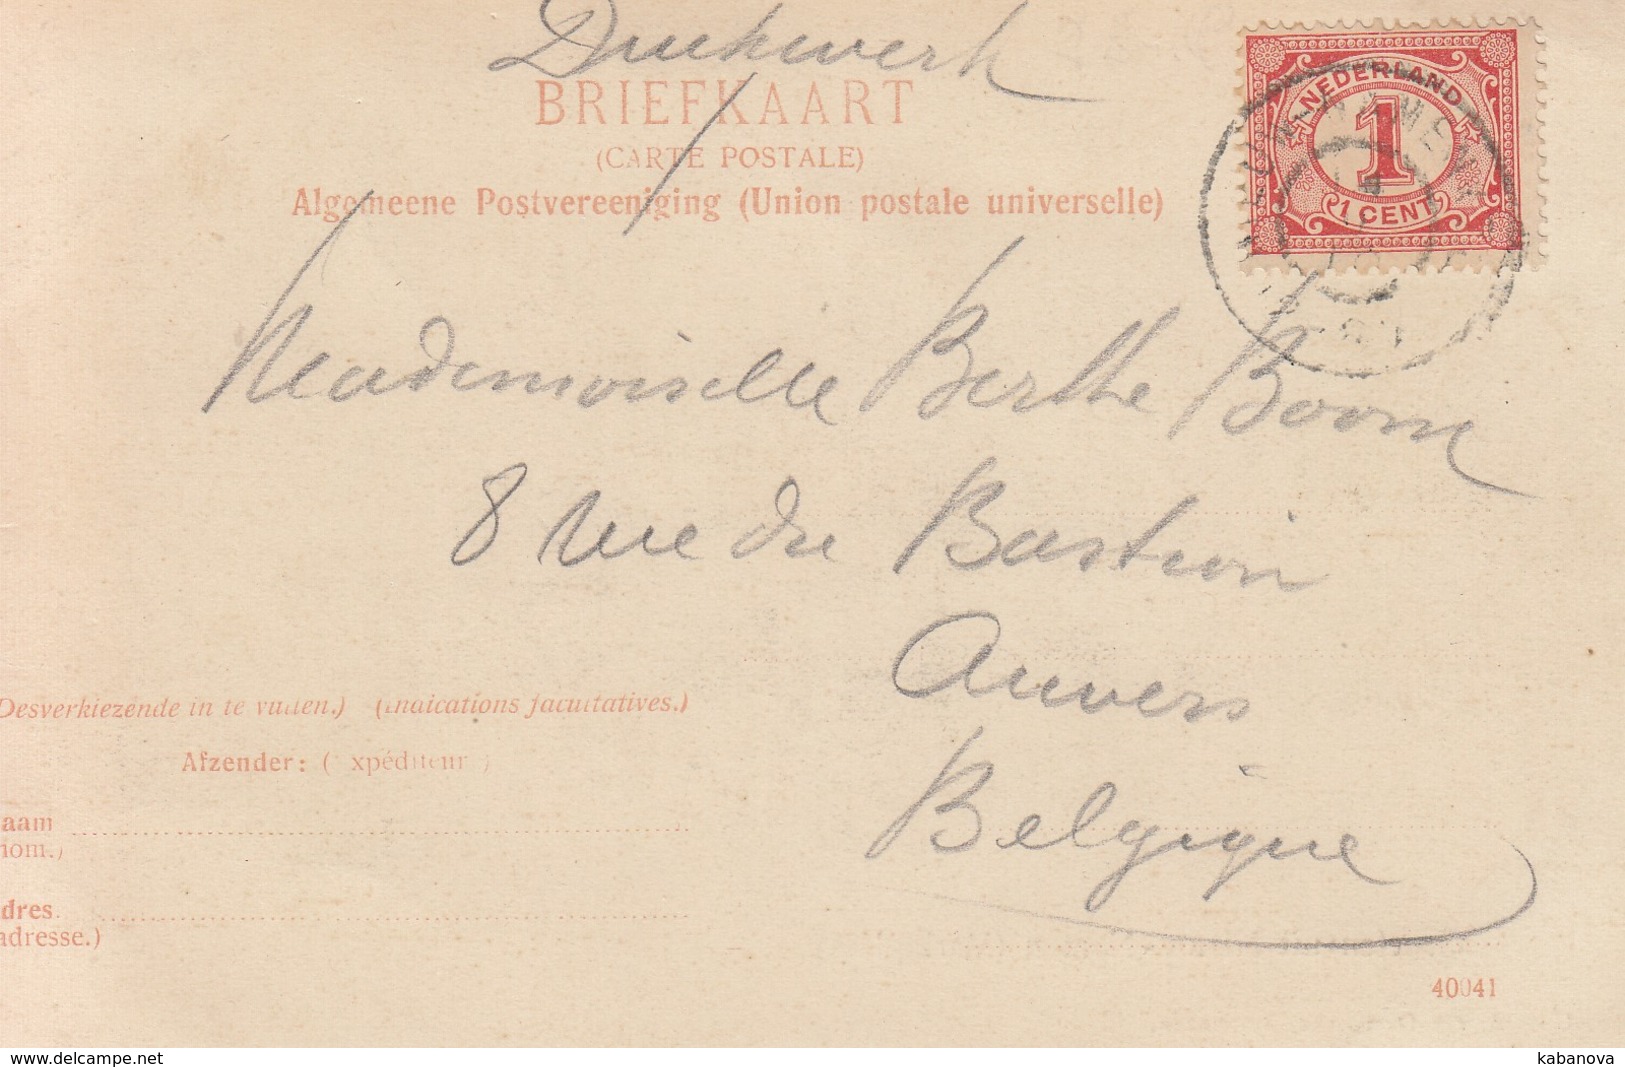 Drukwerk
BRIEFKAART
(CARTE POSTALE)
Algemeene Postvereeniging (Union postale universelle)
NEDERLAND
1
1 CENT
Mademoiselle Berthe Boom
8 Rue du Bastion
Anvers
Belgique
Desverkiezende in te vullen.) (Indications facultatives.)
Afzender: ( xpéditeur )
aam
nom.)
dres.
adresse.)
40041
www.delcampe.net
kabanova